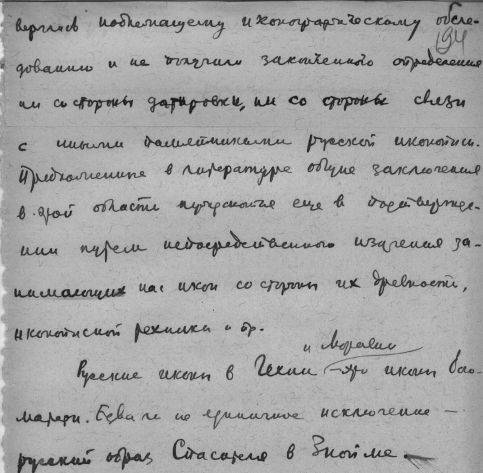 верглись надлежащему иконографическому обсле-
194
дованию и не получили законченного определения
ни со стороны датировки, ни со стороны связи
с иными памятниками русской иконописи.
Предложенные в литературе общие заключения
в этой области нуждаются еще в подтвержде-
нии путем непосредственного изучения за-
нимающих нас икон со стороны их древности,
иконописной техники и др.
и Моравии
Русские иконы в Чехии – это иконы бого-
матери. Едва ли не единичное исключение –
русский образ Спасителя в Зноймe.